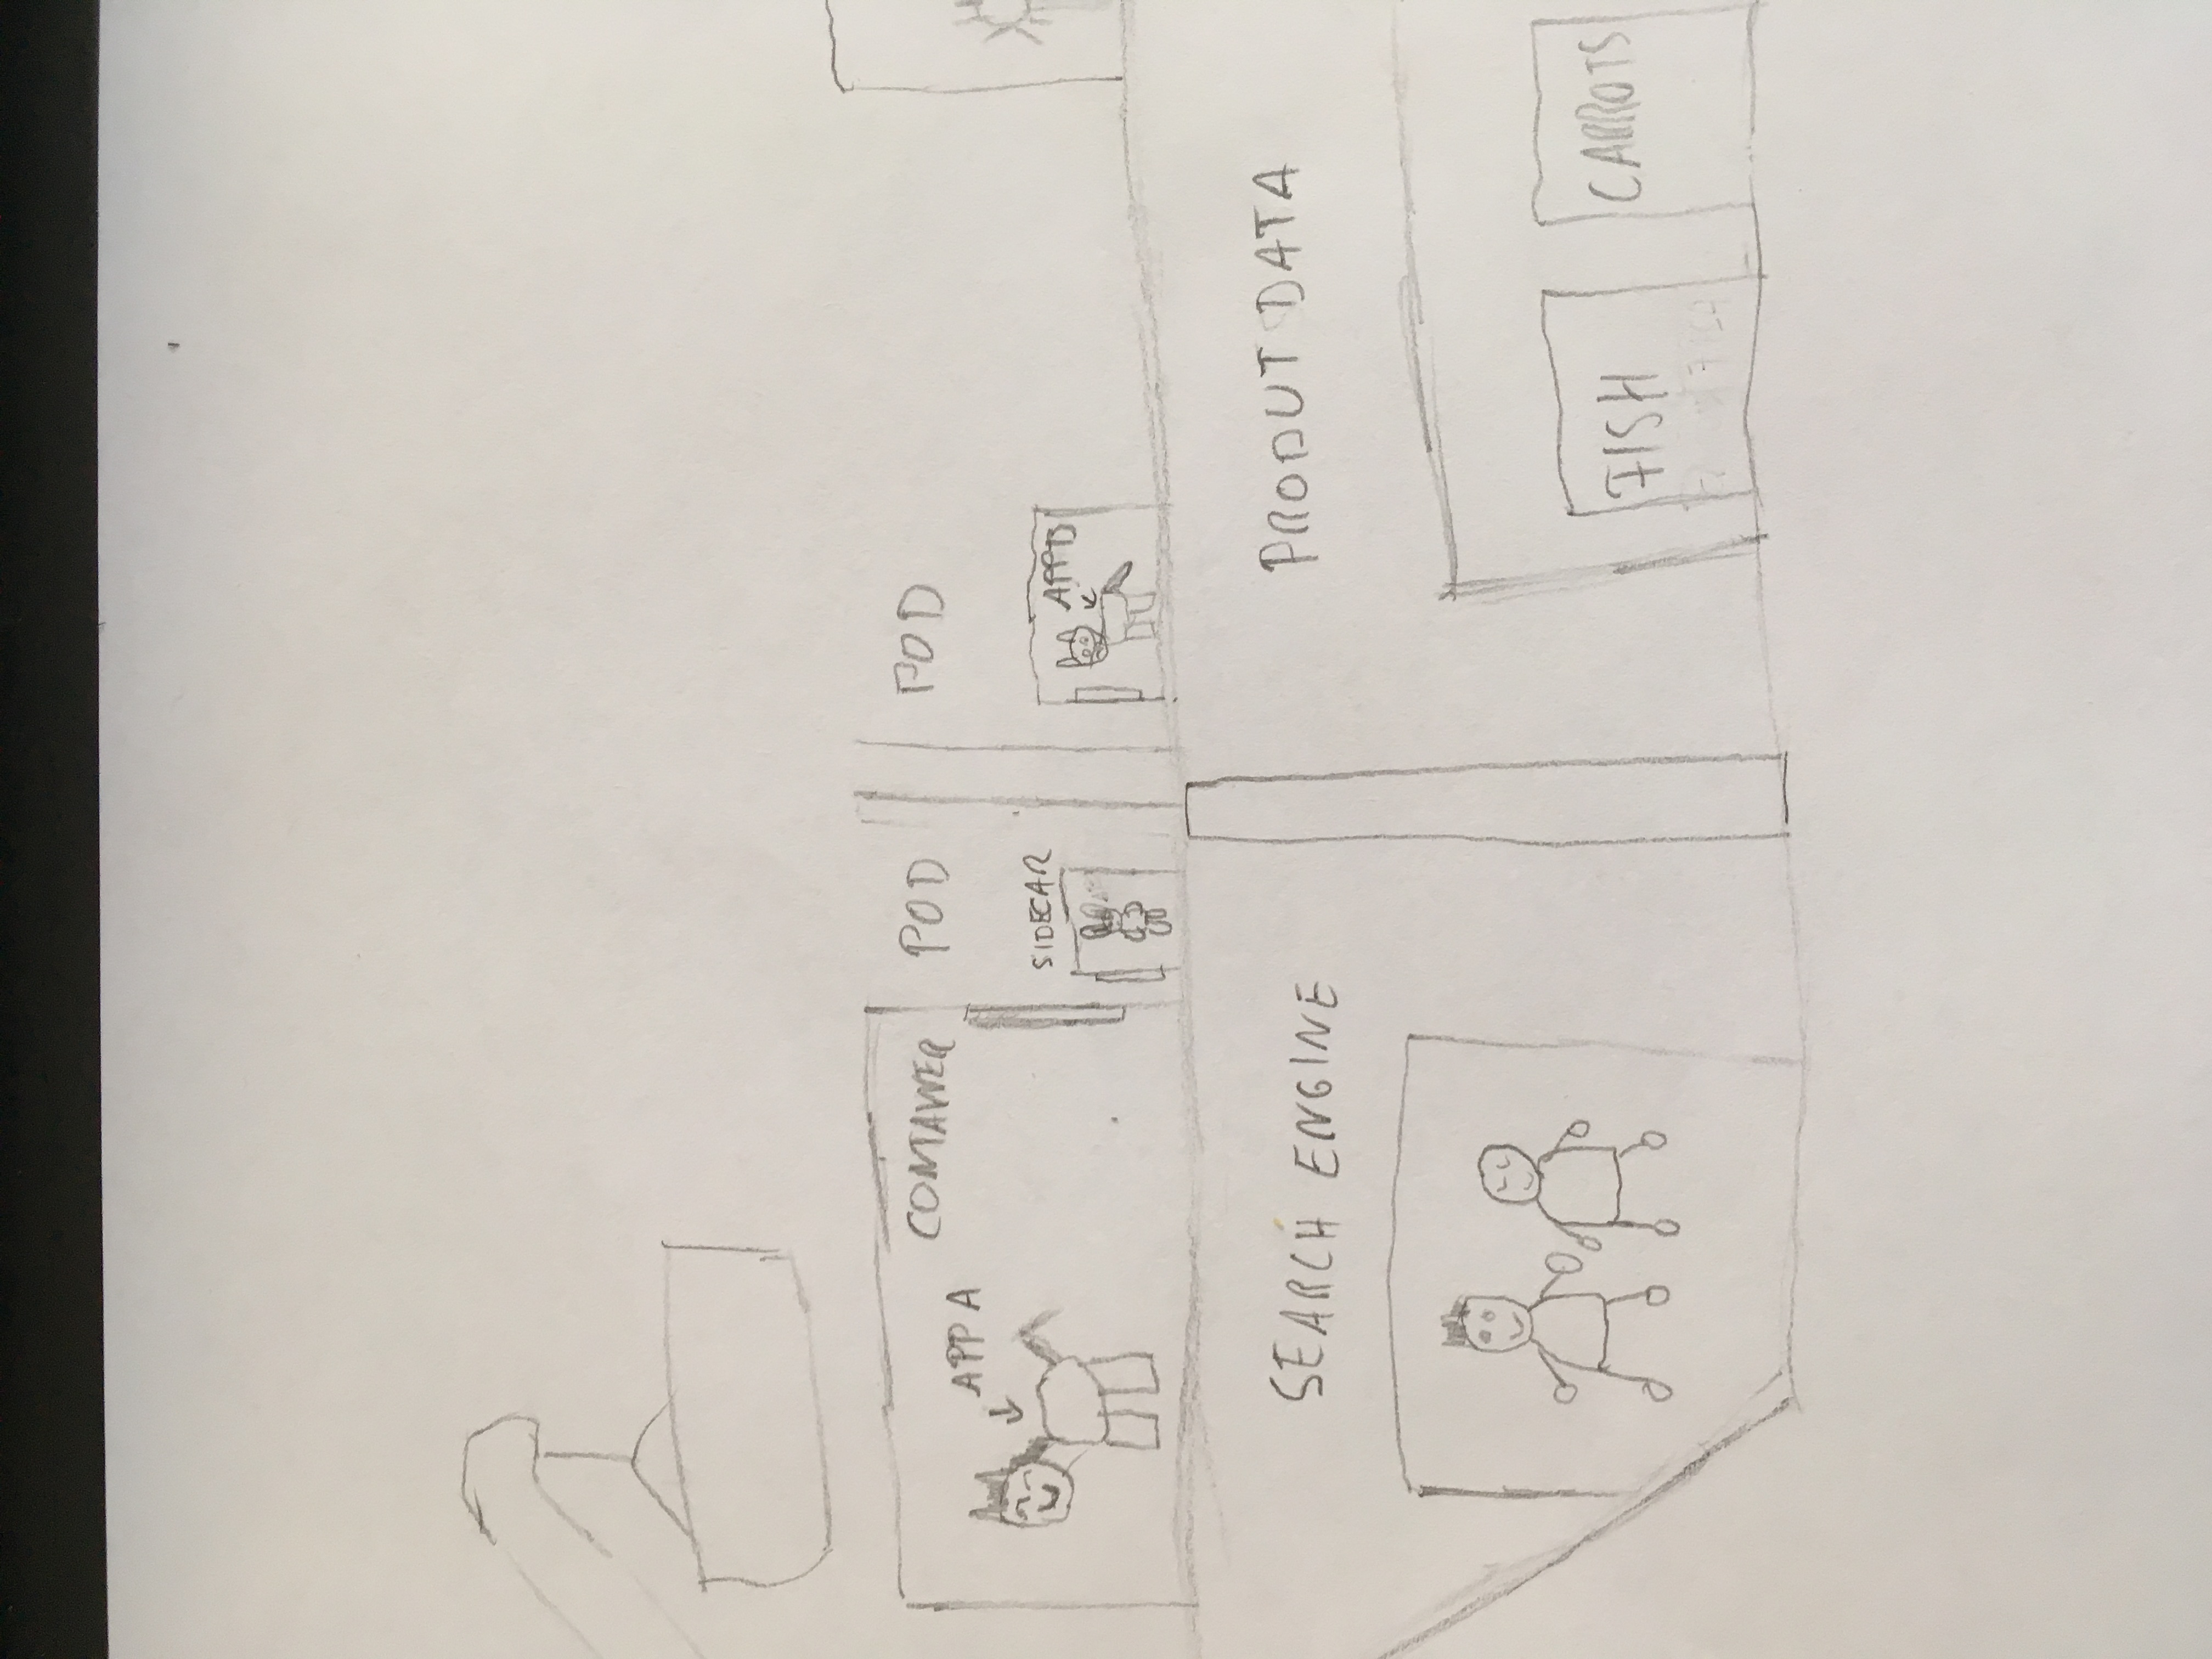 CONTAINER
POD
POD
APP A
SIDECAR
APP B
SEARCH ENGINE
PRODUT DATA
FISH
CARROTS